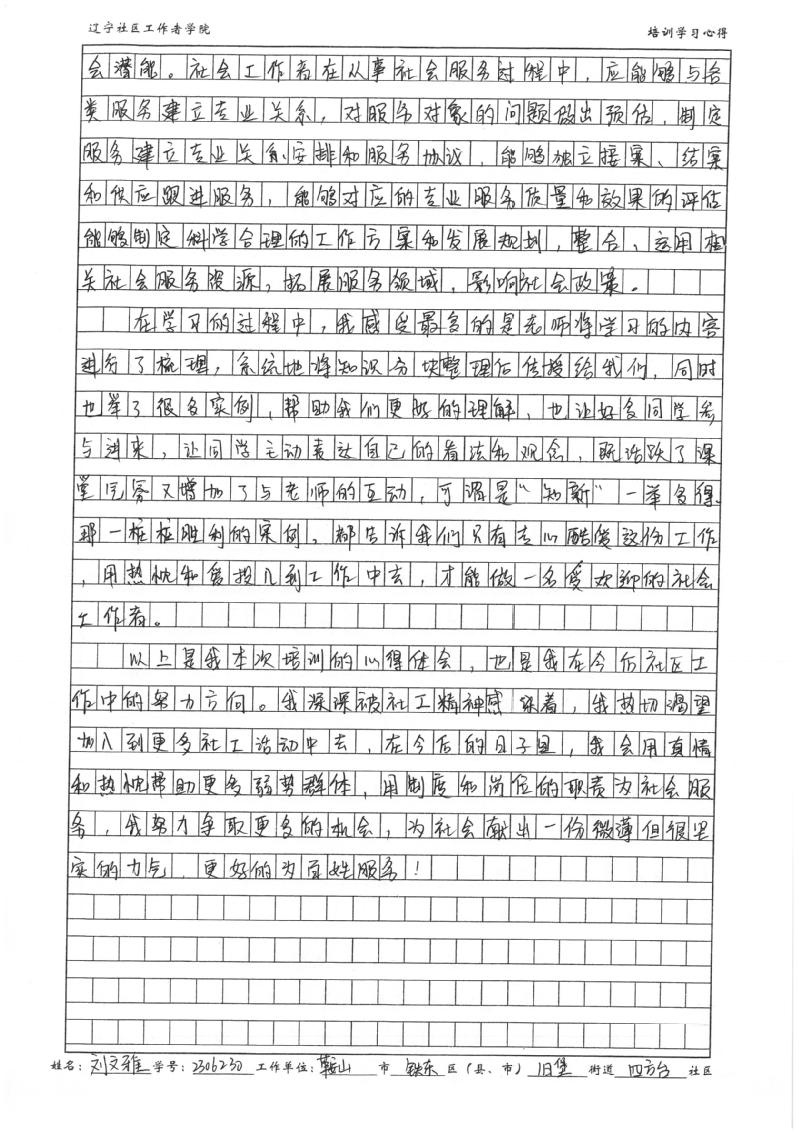 辽宁社区工作者学院 培训学习心得
会潜能。社会工作者在从事社会服务过程中，应能够与各
类服务建立专业关系，对服务对象的问题做出预估，制定
服务建立专业关系安排和服务协议，能够独立接案、结案
和供应跟进服务，能够对应的专业服务质量和效果的评估
能够制定科学合理的工作方案和发展规划，整合、运用相
关社会服务资源，拓展服务领域，影响社会政策。
在学习的过程中，我感受最多的是老师将学习的内容
进行了梳理，系统地将知识分块整理后传授给我们，同时
也举了很多实例，帮助我们更好的理解，也让好多同学参
与进来，让同学主动表达自己的看法和观念，既活跃了课
堂完容又增加了与老师的互动，可谓是“知新”一举多得，
那一桩桩胜利的案例，都告诉我们只有专心酷爱这份工作
，用热忱和爱投入到工作中去，才能做一名受欢迎的社会
工作者。
以上是我本次培训的心得体会，也是我在今后社区工
作中的努力方向。我深深被社工精神感染着，我热切渴望
加入到更多社工活动中去，在今后的日子里，我会用真情
和热忱帮助更多弱势群体，用制度和岗位的职责为社会服
务，我努力争取更多的机会，为社会献出一份微薄但很坚
实的力气，更好的为百姓服务！
姓名：刘文雅 学号：2306230 工作单位：鞍山 市 铁东 区（县、市） 旧堡 街道 四方台 社区